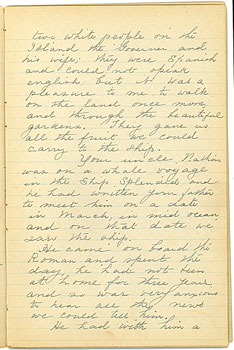 two white people on the
Island the Governer and
his wife; they were Spanish
and could not speak
english but it was a
pleasure to me to walk
on the land once more
and through the beautiful
gardens. They gave us
all the fruit we could
carry to the ship.
Your uncle Nathan
was on a whale voyage
in the Ship Splendid and
he had written your father
to meet him on a date
in March, in mid ocean
and on that date we
saw the ship.
He came on board the
Roman and spent the
day, he had not been
at home for three years
and so was very anxious
to hear all the news
we could tell him.
He had with him a